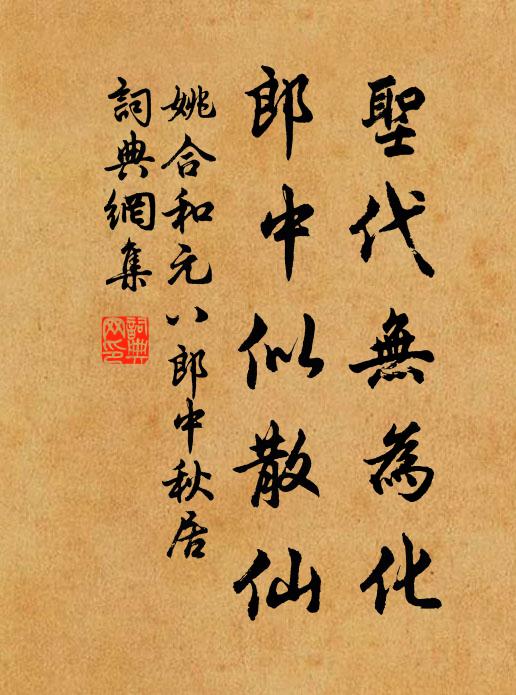 聖代無為化
郎中似散仙
姚合和元八郎中秋居
詞典網集
詞典網印